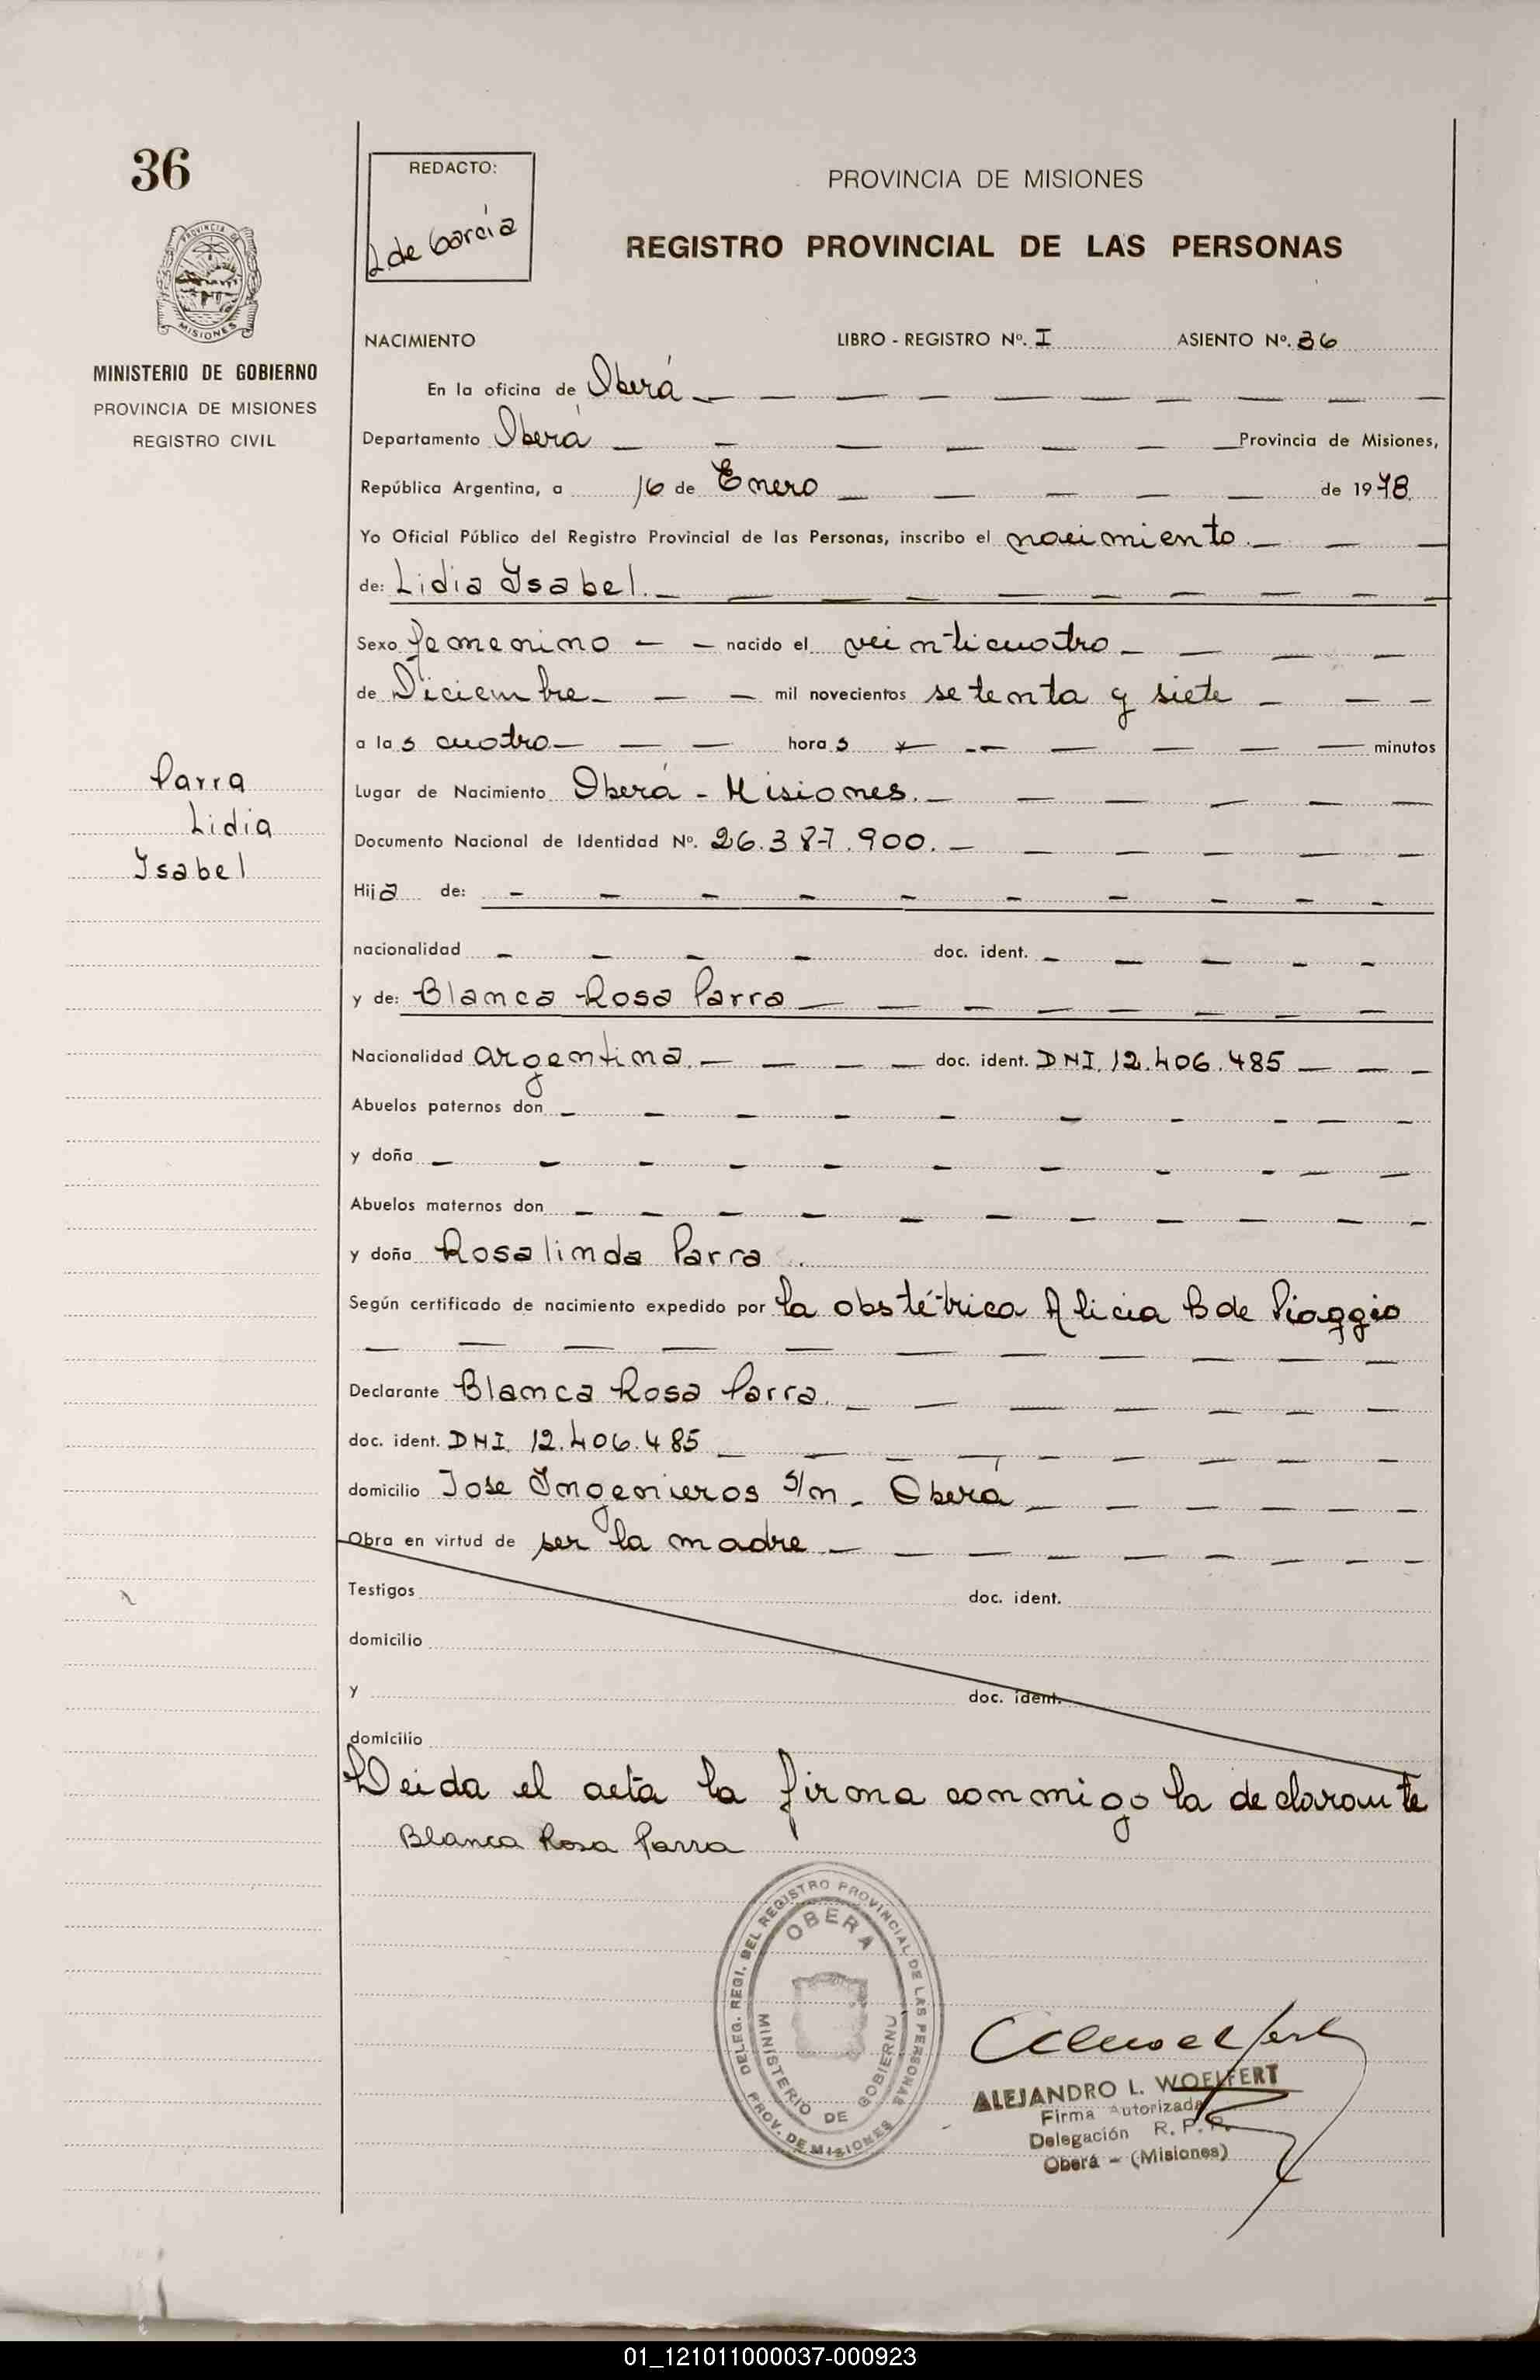 36
REDACTO:
L de García
PROVINCIA DE MISIONES
REGISTRO PROVINCIAL DE LAS PERSONAS
PROVINCIA DE
MISIONES
MINISTERIO DE GOBIERNO
PROVINCIA DE MISIONES
REGISTRO CIVIL
NACIMIENTO LIBRO - REGISTRO Nº. I ASIENTO Nº. 36
En la oficina de Oberá
Departamento Oberá Provincia de Misiones,
República Argentina, a 16 de Enero de 1978
Yo Oficial Público del Registro Provincial de las Personas, inscribo el nacimiento
de: Lidia Ysabel.
Sexo femenino nacido el veinticuatro
de Diciembre mil novecientos setenta y siete
a las cuatro horas minutos
Parra
Lidia
Ysabel
Lugar de Nacimiento Oberá - Misiones.
Documento Nacional de Identidad Nº. 26.387.900.
Hija de:
nacionalidad doc. ident.
y de: Blanca Rosa Parra
Nacionalidad argentina. doc. ident. DNI. 12.406.485
Abuelos paternos don
y doña
Abuelos maternos don
y doña Rosalinda Parra
Según certificado de nacimiento expedido por la obstétrica Alicia B de Piaggio
Declarante Blanca Rosa Parra.
doc. ident. DNI. 12.406.485
domicilio Jose Yngenieros s/n - Oberá
Obra en virtud de ser la madre
Testigos doc. ident.
domicilio
y doc. ident.
domicilio
Leida el acta la firma conmigo la declarante
Blanca Rosa Parra
DELEG. REGI. DEL REGISTRO PROVINCIAL DE LAS PERSONAS
OBERA
MINISTERIO DE GOBIERNO
PROV. DE MISIONES
ALEJANDRO L. WOELFERT
Firma Autorizada
Delegación R. P. P.
Oberá - (Misiones)
01_121011000037-000923